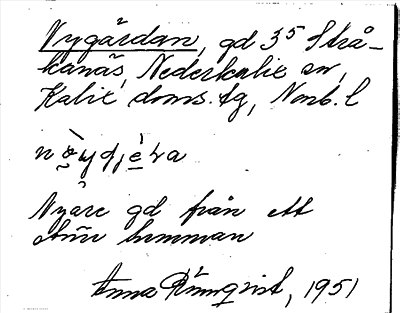 Nygårdan, gd 3⁵ Strå-
kanäs, Nederkalix sn,
Kalix doms. tg, Norrb. l
Nyare gd från ett
hemman
Anna Rönnqvist, 1951